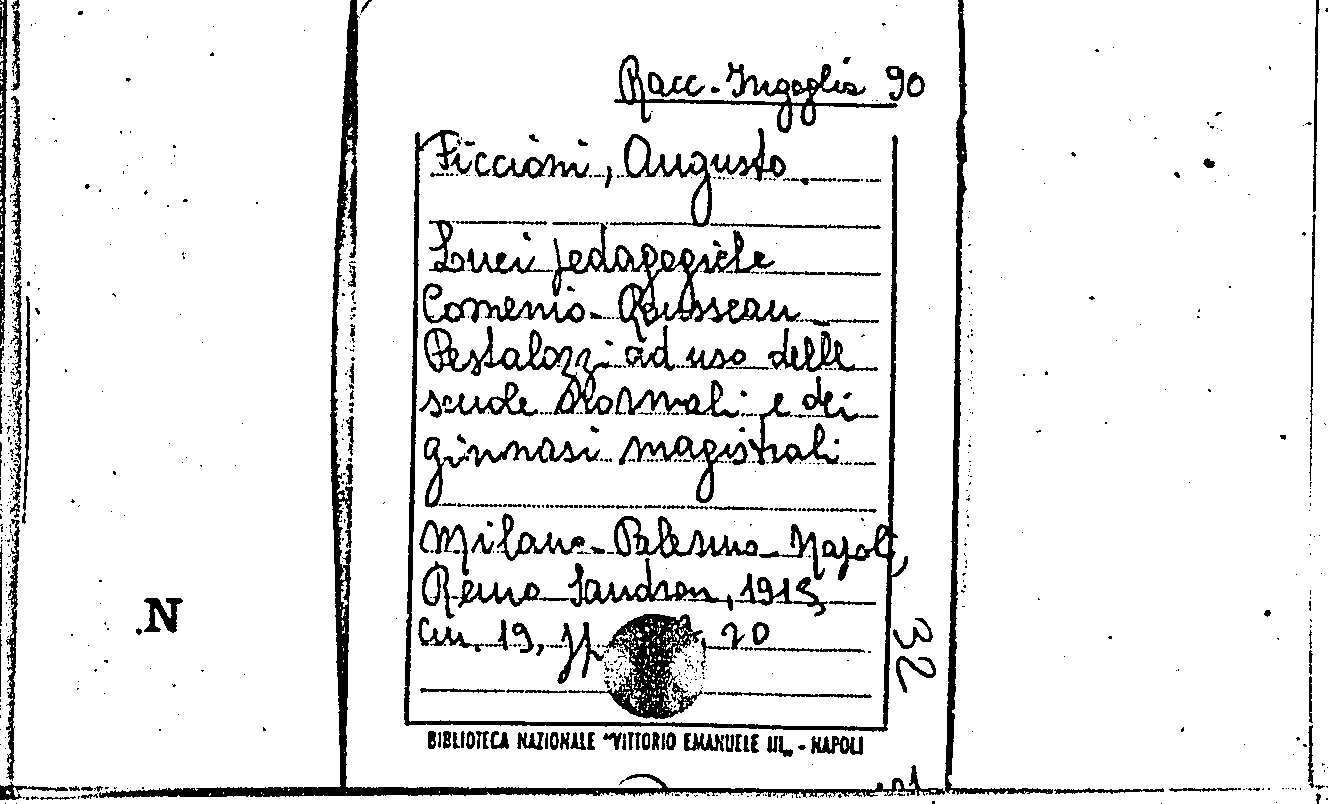 Racc. Ingoglia 90
Ficcioni, Augusto.
Luci pedagogiche
Comenio - Rousseau -
Pestalozzi ad uso delle
scuole Normali e dei
ginnasi magistrali
Milano - Palermo - Napoli,
Remo Sandron, 1915,
cm. 19, pp. 20
32
N
BIBLIOTECA NAZIONALE "VITTORIO EMANUELE III„ - NAPOLI